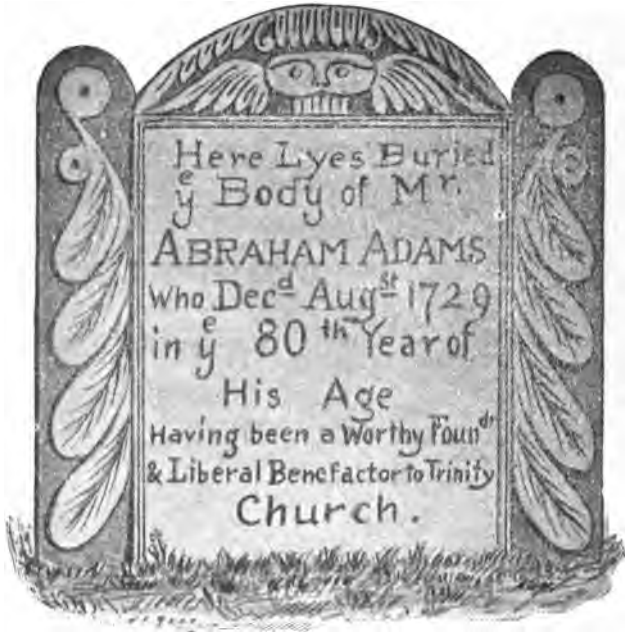 Here Lyes Buried
yᵉ Body of Mʳ.
ABRAHAM ADAMS
Who Decᵈ Augˢᵗ 1729
in yᵉ 80ᵗʰ Year of
His Age
Having been a Worthy Founᵈʳ
& Liberal Benefactor to Trinity
Church.